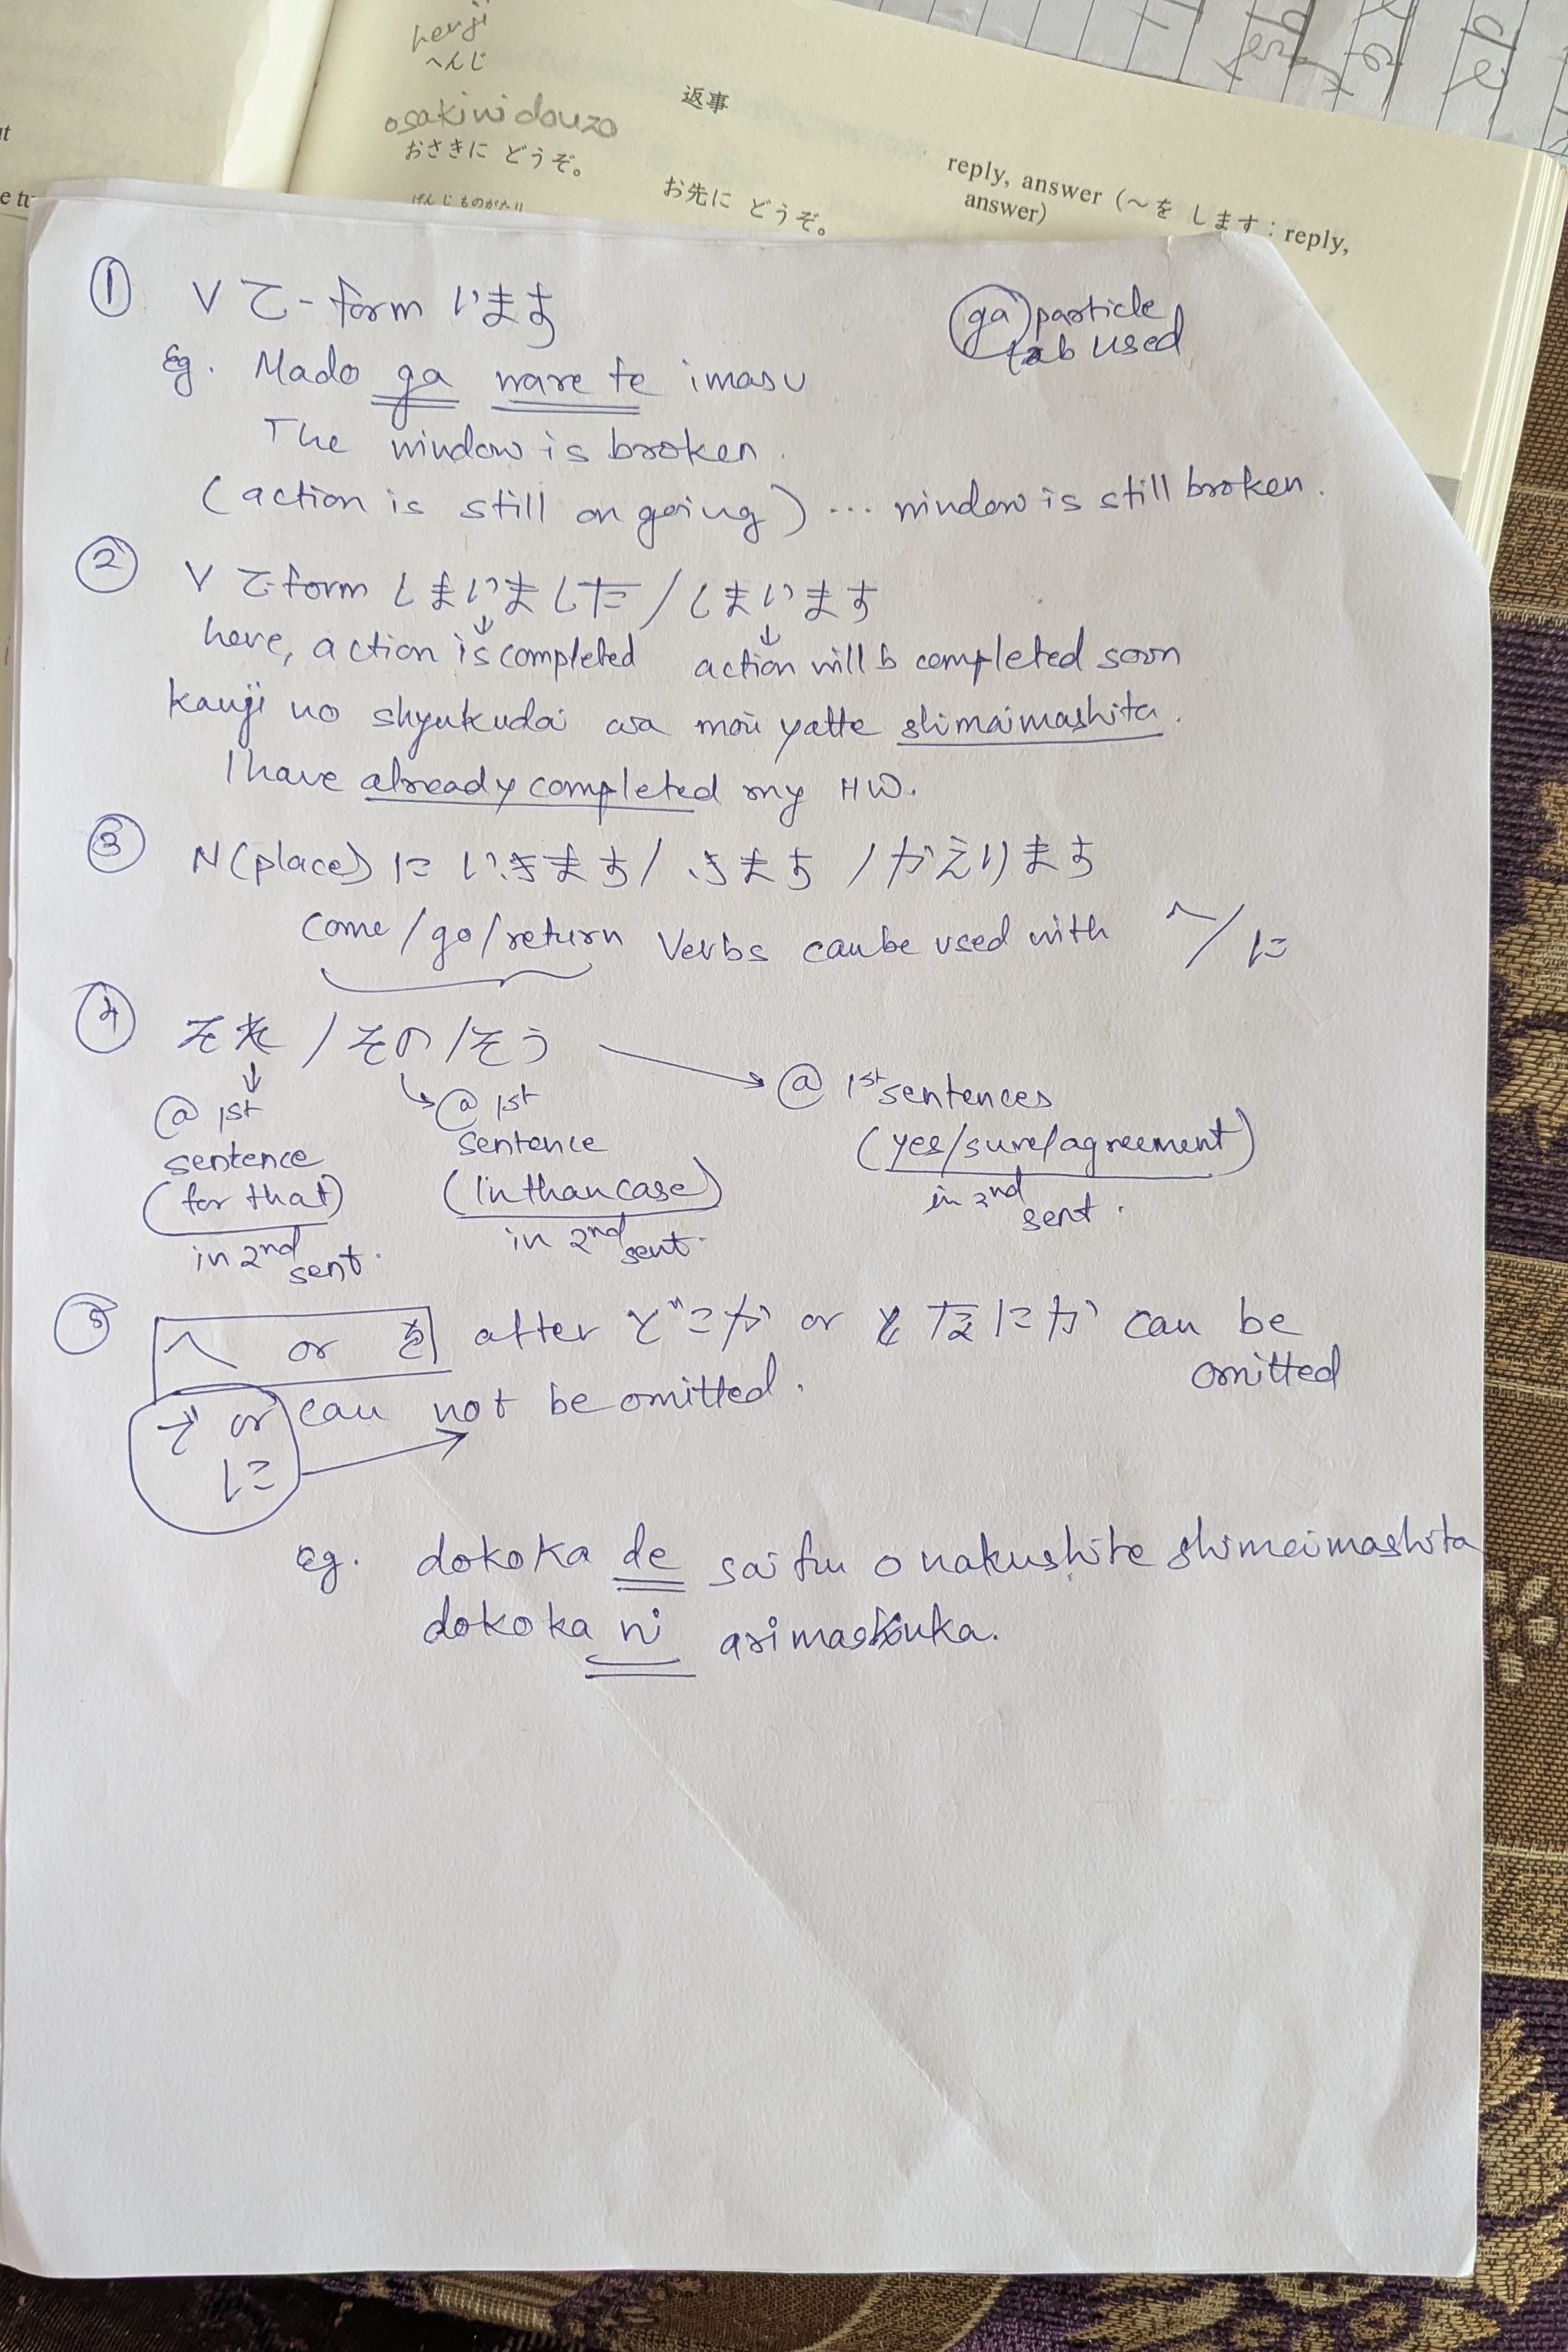 henji
へんじ
返事
reply, answer (〜を します : reply,
answer)
osakini douzo
おさきに どうぞ。
お先に どうぞ。
げんじものがたり
① V て-form います
ga particle
to b used
Eg. Mado ga ware te imasu
The window is broken.
(action is still on going) ... window is still broken.
② V て form しまいました / しまいます
here, action is completed action will b completed soon
kanji no shyukudai wa mou yatte shimaimashita.
I have already completed my HW.
③ N (place) に いきます / きます / かえります
come / go / return Verbs can be used with へ / に
④ それ / その / そう
@ 1st sentence (for that) in 2nd sent.
@ 1st sentence (In than case) in 2nd sent.
@ 1st sentences (yes/sure/agreement) in 2nd sent.
⑤ へ or を after どこか or なにか can be
omitted
で or に can not be omitted.
eg. dokoka de saifu o nakushite shimaimashita
dokoka ni